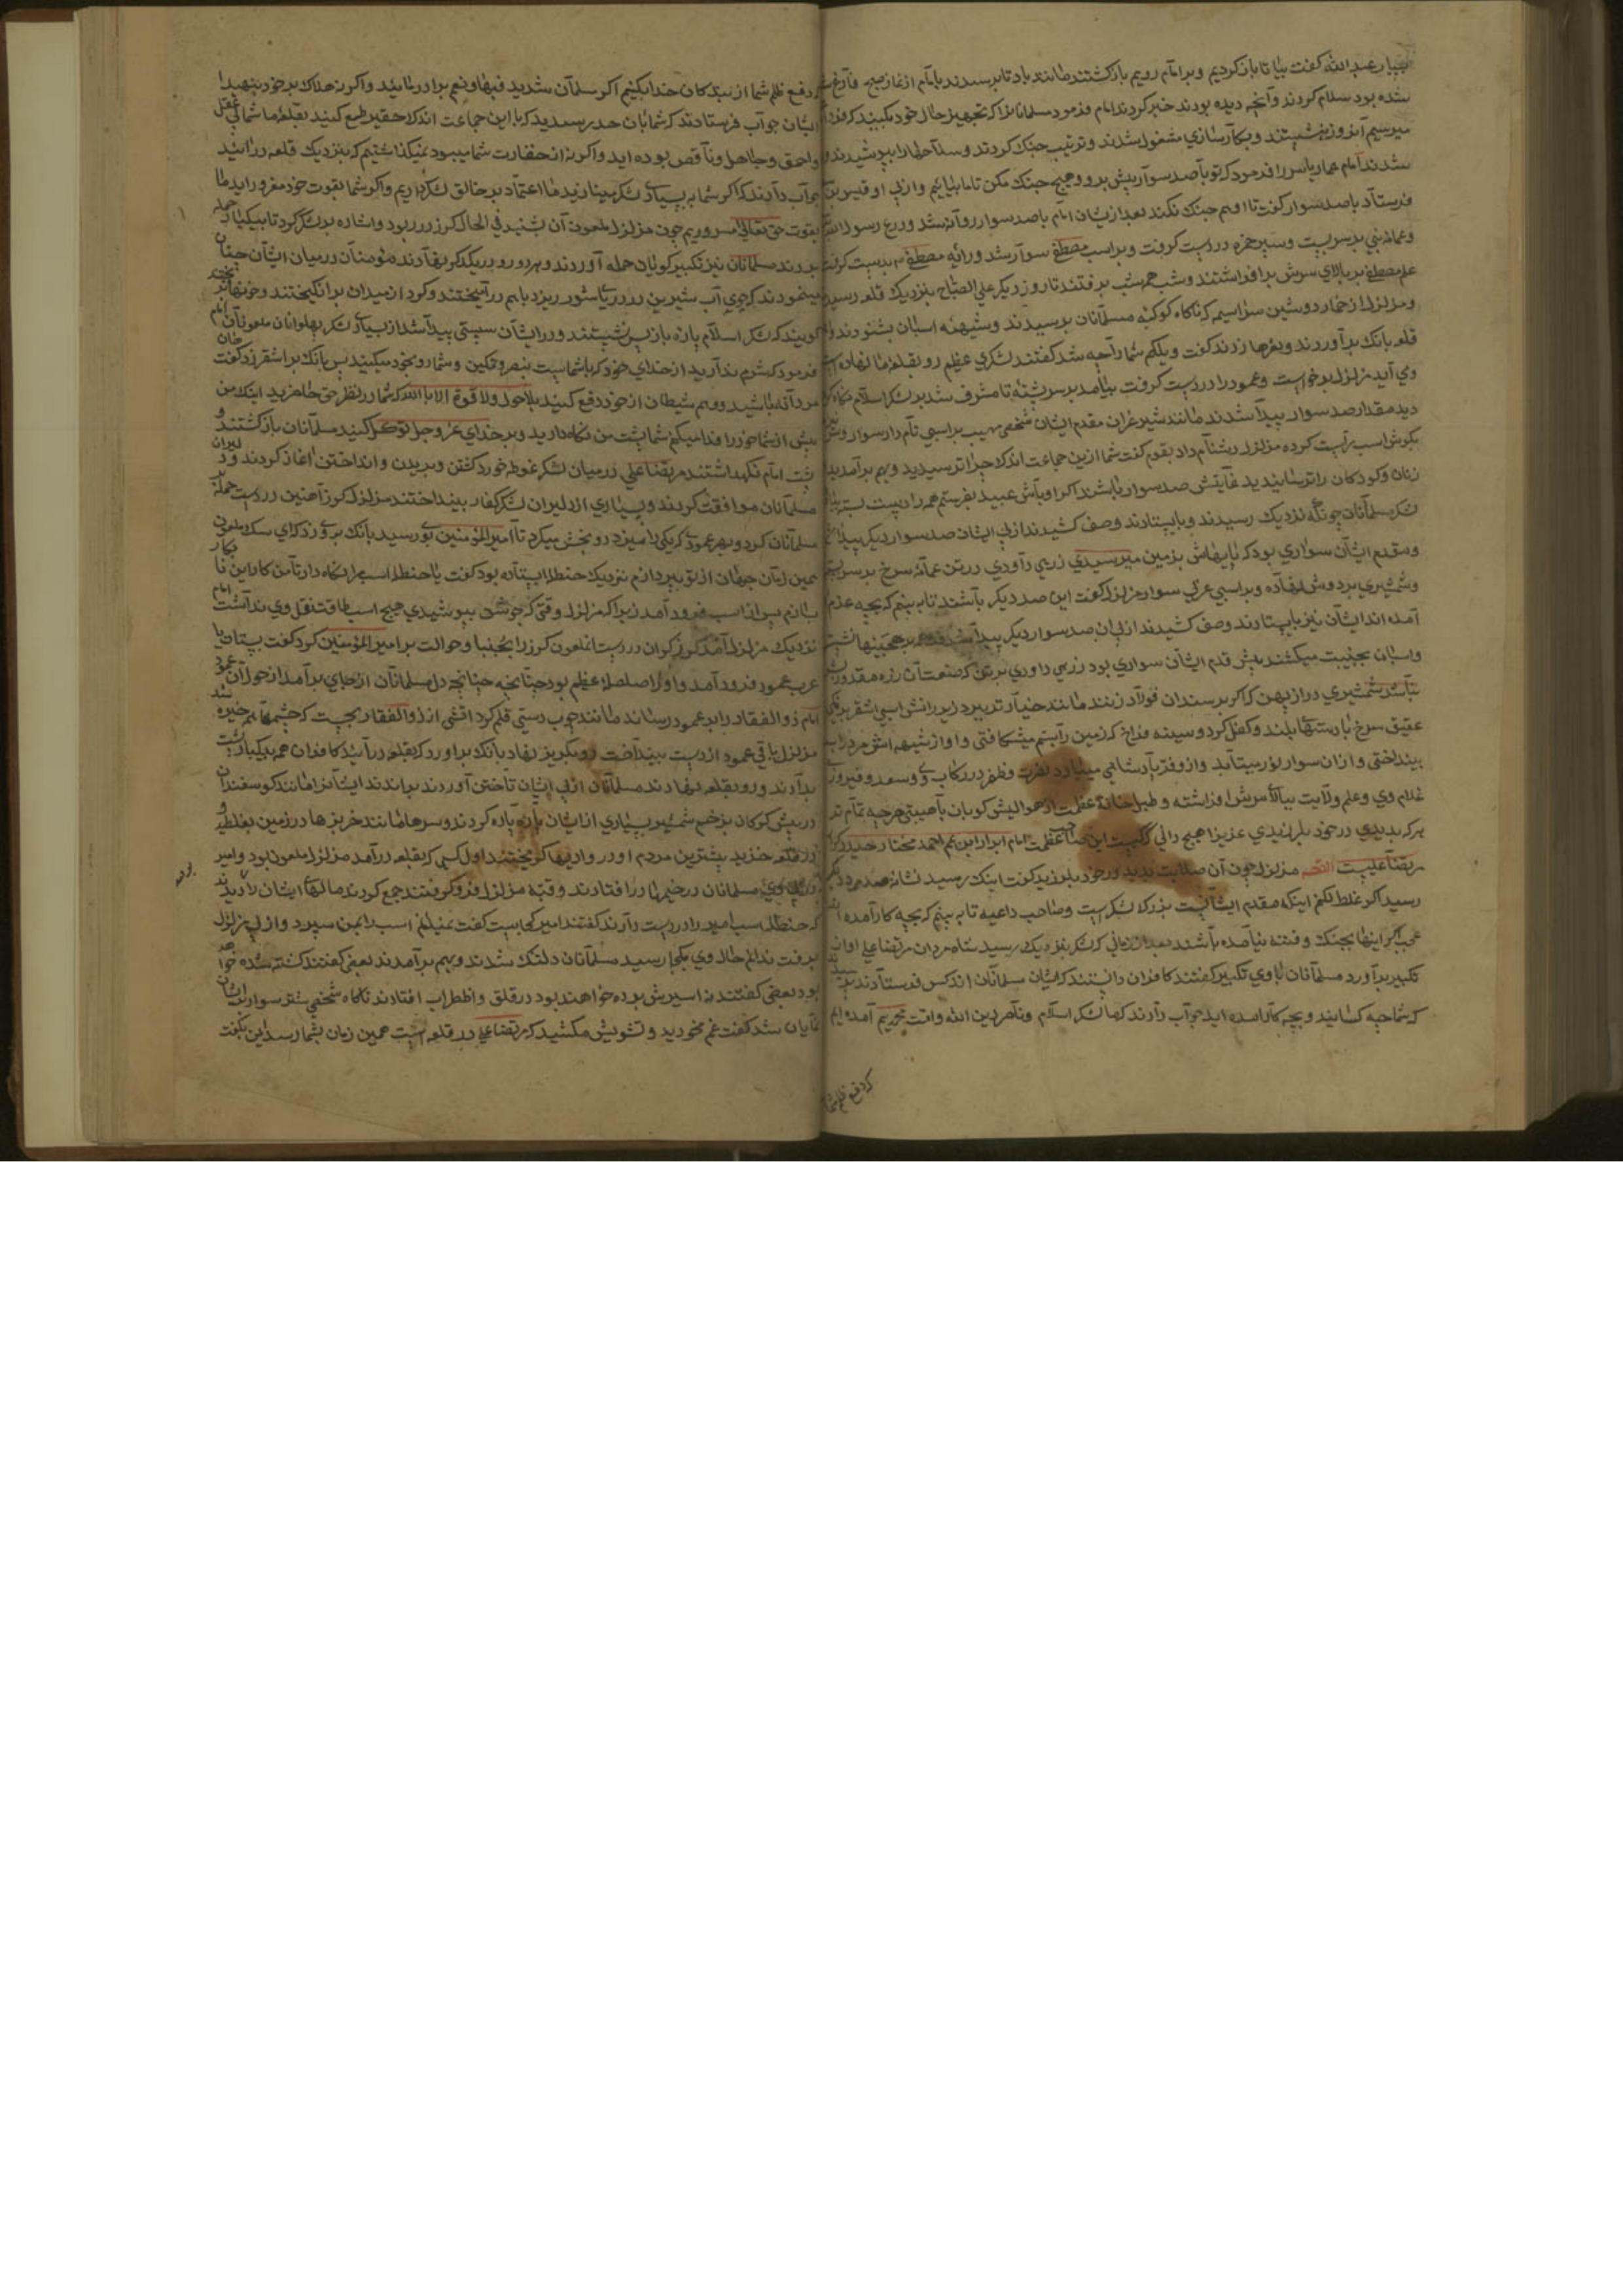 بسیار عبدالله گفت بیا تا باز گردیم و بر امام رویم باز گشتند مانند باد تا برسیدند با امام از نماز صبح فارغ
شده بود سلام کردند و آنچه دیده بودند خبر کردند امام فرمود مسلمانانرا که تجهیز حال خود بکنید که فردا
میرسیم آنروز بنشستند و بکارسازی مشغول شدند و ترتیب جنک کردند و سلاحها را بپوشیدند و
شدند امام عمار یاسر را فرمود که تو با صد سوار پیش برو و هیچ جنک مکن تا ما بیاییم و از پی او قیس بن
فرستاد با صد سوار گفت تا او هم جنک نکند بعد از یشان امام با صد سوار روانه شد و درع رسول الله
و عمامه نبی بر سر بست و سپر حمزه در دست گرفت و بر اسب مصطفی سوار شد و رایه مصطفی بدست گرفت
علم مصطفی بر بالای سرش بر افراشتند و شب همه شب برفتند تا روز دیگر علی الصباح بنزدیک قلعه رسید
و مزلزل از خمار دوشین سراسیمه که ناکاه کوکبه مسلمانان برسیدند و شیهه اسبان بشنودند
قلعه بانک بر آوردند و نعرها زدند گفت ویلکم شما را چه شد گفتند لشکری عظیم رو بقلعه ما نهاده
وی آید مزلزل برخواست و عمود را در دست گرفت بیامد بر سر پشته تا مشرف شد بر لشکر اسلام نکاه کرد
دید مقدار صد سوار پیدا شدند مانند شیر غران مقدم ایشان شخصی مهیب بر اسبی نام دار سوار
بکوش اسب راست کرده مزلزل دشنام داد بقوم گفت شما ازین جماعت اندک چرا ترسیدید و بهم برآمدید
زنان و کودکان را ترسانیدید غایتش صد سوار باشند اکر اوباش عبید بفرستم همه را دست بسته
لشکر مسلمانان چونکه نزدیک رسیدند و بایستادند وصف کشیدند از پی ایشان صد سوار دیکر پیدا
و مقدم ایشان سواری بود که پایهاش بزمین میرسیدی زرهی داودی در تن عمامه سرخ بر سر
و شمشیری بر دوش نهاده و بر اسبی عربی سوار مزلزل گفت این صد دیکر باشند تا به بینم که بچه عزم
آمده اند ایشان نیز بایستادند وصف کشیدند از پی ایشان صد سوار دیکر پیدا شد
و اسبان بجنیبت میکشند پیش قدم ایشان سواری بود زرهی داودی
شمشیری دراز پهن که اکر بر سندان فولاد زنند مانند خیار تر ببرد زیر رانش اسبی اشقر
عقیق سرخ با دستهای بلند و کفل کرد و سینه فراخ که زمین را بسم میشکافتی و اواز شیهه اش
بینداختی و از ان سوار نور میتابد و از و فر پادشاهی میبارد نصرت و ظفر در رکاب وی و سعد و فیروز
غلام وی و علم ولایت ببالا سرش افراشته و طبل خانه عظمت از حوالیش کوبان با هیبتی هر چه تمام تر
هر که بدیدی در خود بلرزیدی عزیزا هیچ دانی که کیست این امام ابرار ابن عم احمد مختار حیدر
مرتضا علیست القصه مزلزل چون آن صلابت بدید در خود بلرزید گفت اینک رسید
رسید اکر غلط نکنم اینکه مقدم ایشانست بزرک لشکر است و صاحب داعیه تا به بینم که بچه کار آمده
عجب اکر اینها بجنک و فتنه نیامده باشند بعد از زمانی که لشکر نزدیک رسید شاه مردان مرتضا علی اواز
تکبیر برآورد مسلمانان با وی تکبیر گفتند کافران دانستند که ایشان مسلمانان اند کس فرستادند
که شما چه کسانید و بچه کار آمده اید جواب دادند که ما لشکر اسلام و ناصر دین الله و امت محمدیم آمده ایم
که دفع ظلم شما
که دفع ظلم شما از بندکان خدا بکنیم اکر مسلمان شدید فبها و نعم برادر مائید و اکر نه هلاک بر خود بنهید
ایشان جواب فرستادند که شما بان حد رسیدید که با این جماعت اندک حقیر طمع کنید بقلعه ما شما بی عقل
و احمق و جاهل و ناقص بوده اید و اکر نه از حقارت شما میبود نمیکذاشتیم که بنزدیک قلعه در آئید
جواب دادند که اکر شما به بسیاری لشکر مینازید ما اعتماد بر خالق لشکر داریم و اکر شما بقوت خود مغرورید ما
بقوت حق تعالی مسروریم چون مزلزل ملعون آن بشنید فی الحال کرز در ربود و اشاره بر لشکر کرد تا بیکبار حمله
بردند مسلمانان نیز تکبیر کویان حمله آوردند و هر دو رو در یکدکر نهادند مؤمنان در میان ایشان چنان
مینمودند که جوی آب شیرین در دریای شور ریزد باهم در آمیختند و کرد از میدان بر انکیختند و خونها
کویند که لشکر اسلام پاره باز پس نشستند و در ایشان سستی پیدا شد از بسیاری لشکر پهلوانان ملعونان امام
فرمود که شرم ندارید از خدای خود که با شماست بنصر و تمکین و شما رو بخود میکنید پس بانک بر اشقر زد گفت
مردانه باشید و وهم شیطان از خود دفع کنید بلا حول و لا قوة الا بالله که شما در نظر حق حاضرید اینک من
پیش از شما خود را فدا میکنم شما پشت من نکاه دارید و بر خدای عز و جل توکل کنید مسلمانان باز کشتند و
پشت امام نکهداشتند مرتضا علی در میان لشکر غوطه خورد کشتن و بریدن و انداختن آغاز کردند
مسلمانان موافقت کردند و بسیاری از دلیران لشکر کفار بینداختند مزلزل کرز آهنین در دست حمله
مسلمانان کرد و بهر عمودی که یکی را میزد دو بخش میکرد تا امیرالمؤمنین بوی رسید بانک بروی زد که ای سک ملعون
همین زمان جهان از تو بپردازم نزدیک حنظله ایستاده بود گفت یا حنظله اسپ مرا نکاه دار تا من کار این
بسازم پس از اسب فرود آمد زیرا که مزلزل وقتی که جوشن بپوشیدی هیچ اسب طاقت ثقل وی نداشت امام
نزدیک مزلزل آمد کرز کران در دست انملعون کرز را بجنبانید و حوالت بر امیرالمؤمنین کرد گفت بستان یا
عرب عمود فرود آمد و او را صلصله عظیم بود چنانچه دل مسلمانان از جای برآمد از هول آن عمود
امام ذوالفقار را بر عمود رسانید مانند چوب دستی قلم کرد اتشی از ذوالفقار بجست که چشمها هم خیره شد
مزلزل باقی عمود از دست بینداخت رو بکریز نهاد بانک براورد که بقلعه در آئید کافران همه بیکبار پشت
بدادند و رو بقلعه نهادند مسلمانان از پی ایشان تاختن آوردند براندند ایشانرا مانند کوسفندان
در پیش کرکان بزخم شمشیر بسیاری از ایشان پاره پاره کردند و سرها مانند خربزها در زمین بغلطید
در قلعه خزید بیشترین مردم او در وادیها کریختند اول کسی که بقلعه درآمد مزلزل ملعون بود و امیر
از پی وی مسلمانان در خیمها در افتادند و قبه مزلزل فرو کوفتند جمع کردند مالهای ایشان را دیدند
که حنظله اسب امیر را در دست دارند گفتند امیر کجاست گفت نمیدانم اسب را بمن سپرد و از پی مزلزل
برفت ندانم حال وی بکجا رسید مسلمانان دلتنک شدند و بهم برآمدند بعضی گفتند کشته شده
بود بعضی گفتند نه اسیرش برده خواهند بود در قلق و اضطراب افتادند ناکاه شخصی شتر سوار
نمایان شد گفت غم مخورید و تشویش مکشید که مرتضا علی در قلعه است همین زمان بشما رسد این بگفت